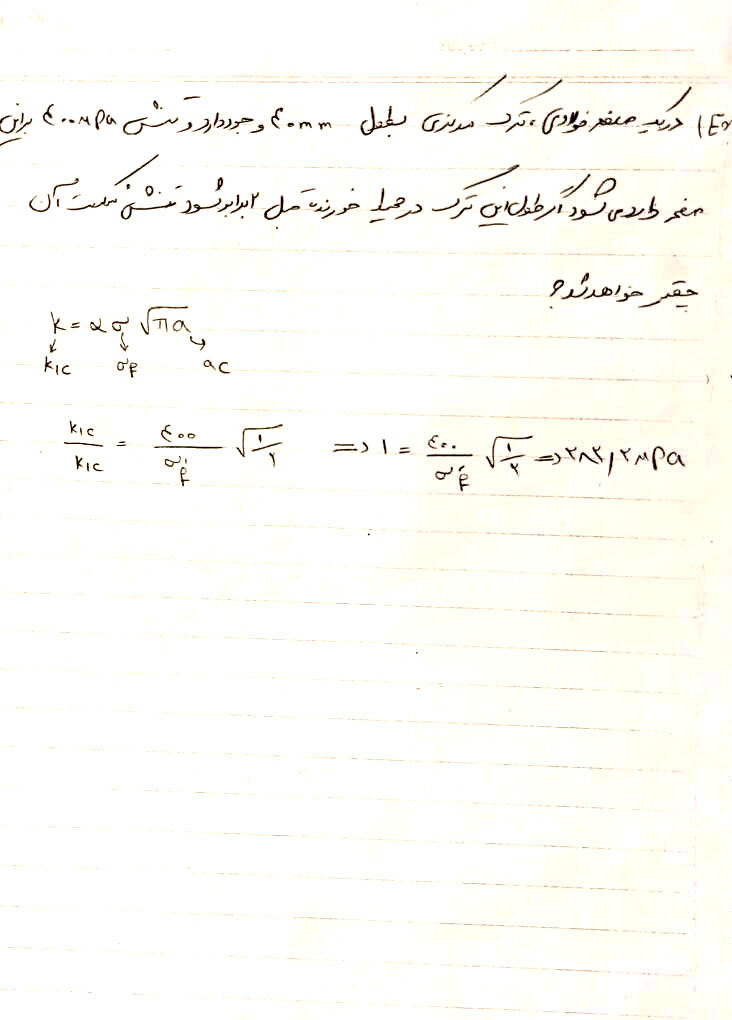 Ex1) در یک صفحه فولادی، ترک مرکزی بطول ۴۰mm وجود دارد و تنش ۴۰۰MPa براین
صفحه وارد می شود اگر طول این ترک در محیط خورنده قبل ۲برابر شود تنش شکست آن
چقدر خواهد شد؟
k = α σ √πa
k1c σf ac
k1c/k1c = ۴۰۰/σ'f √۱/۲ => ۱ = ۴۰۰/σ'f √۱/۲ => ۲۸۳٫۲MPa